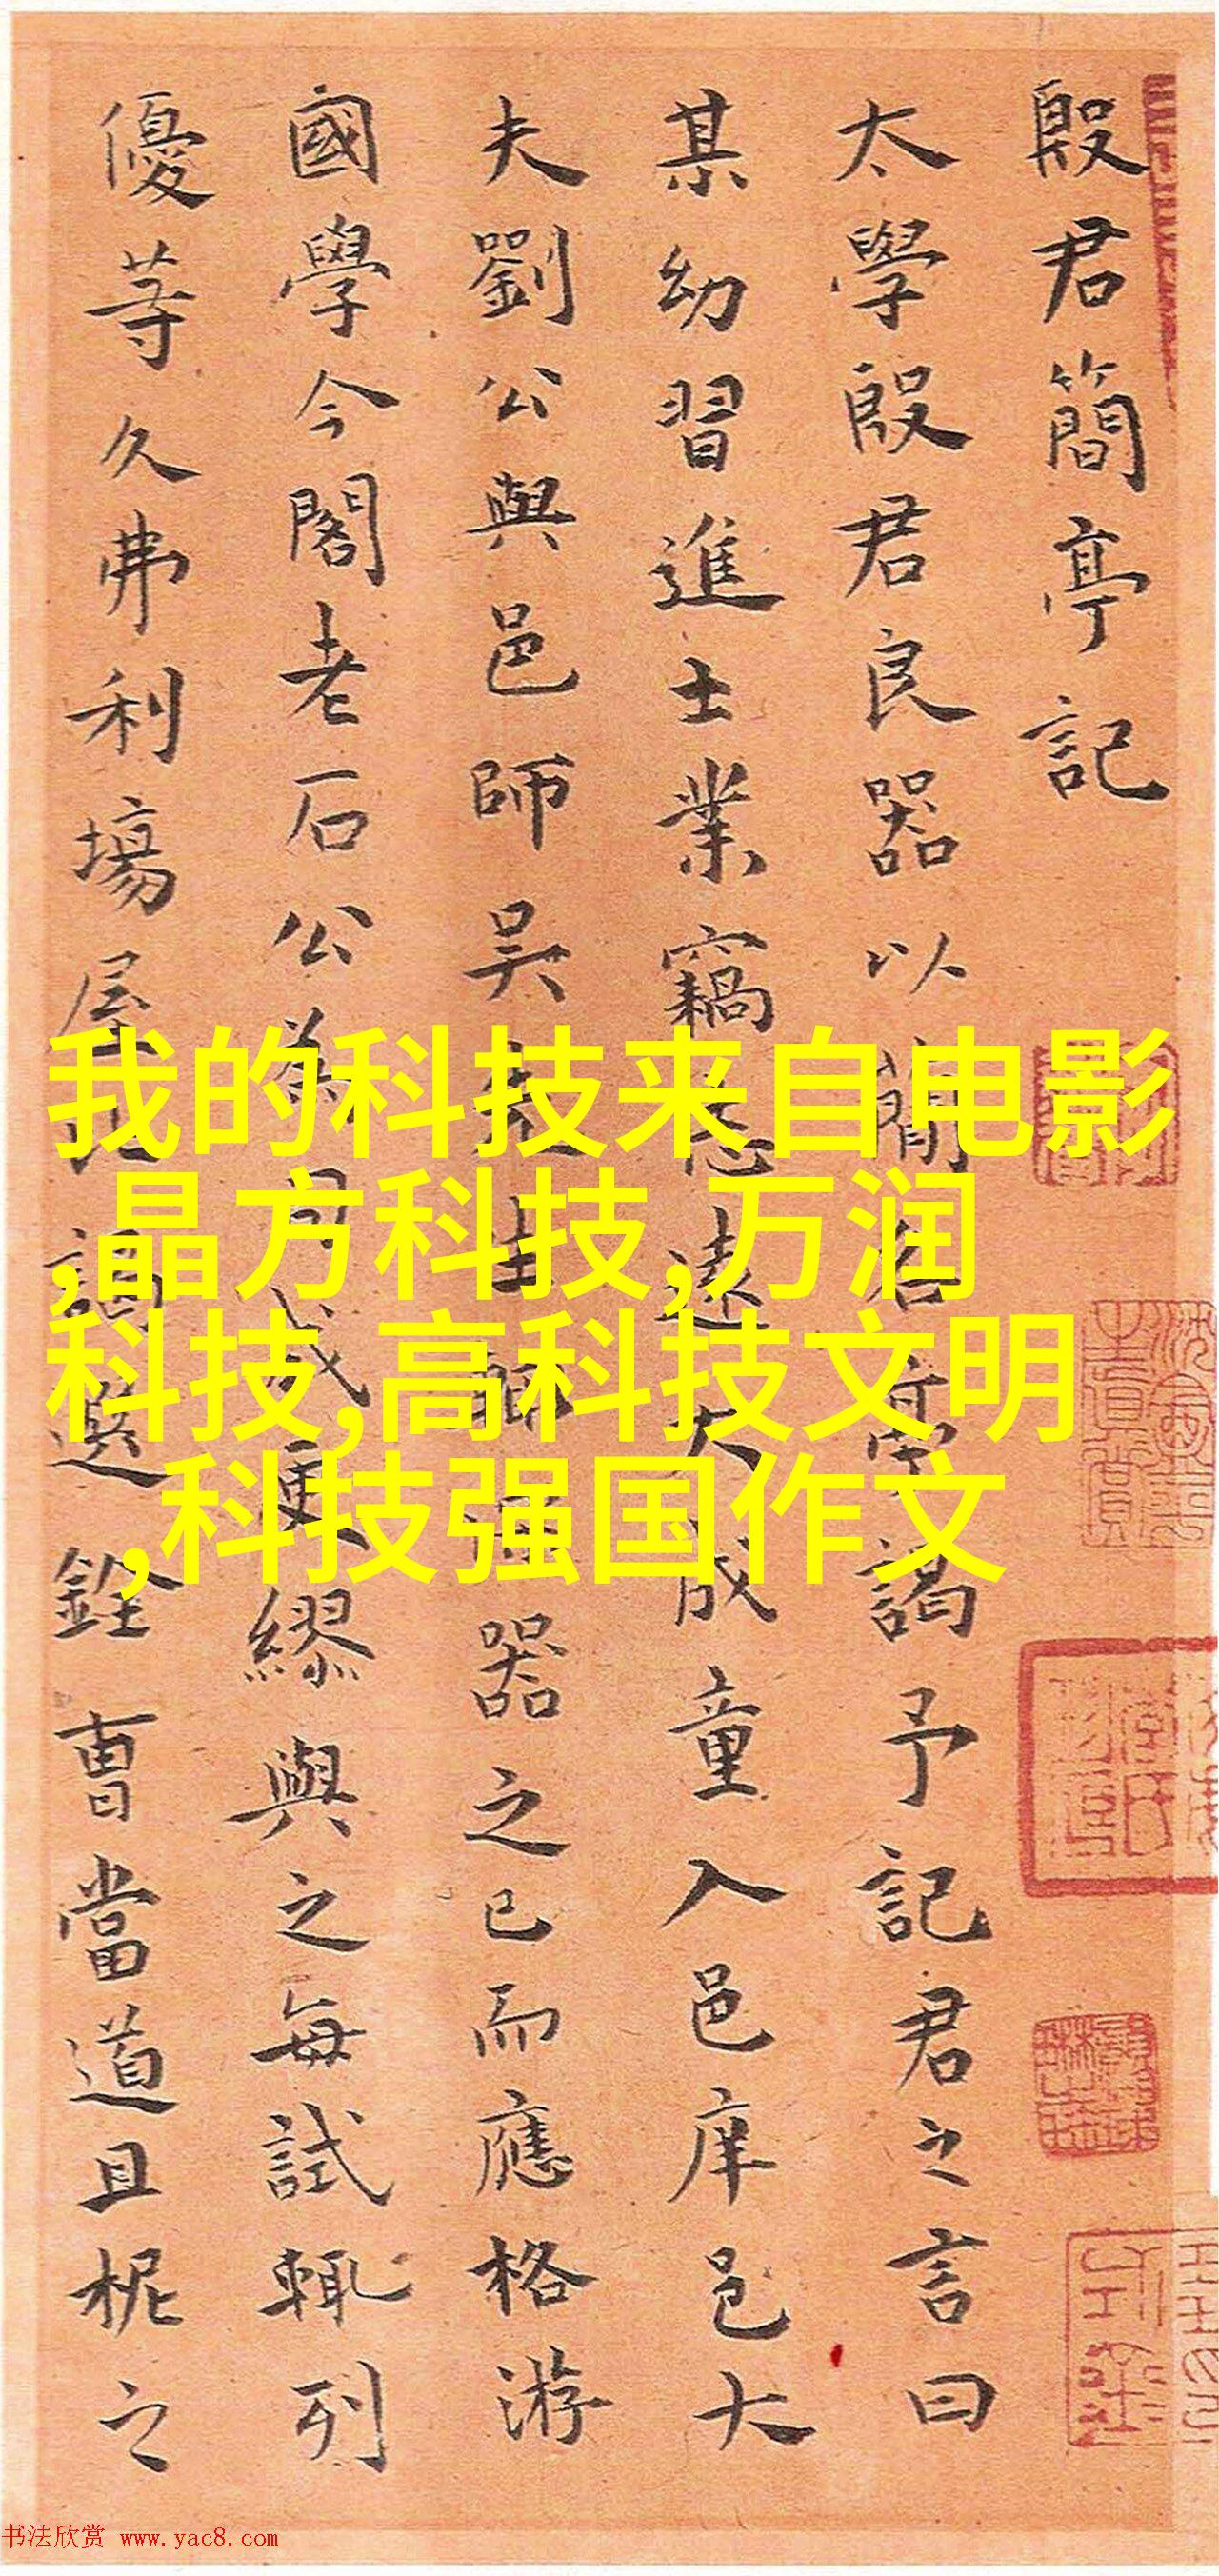 殷君簡亭記
太學殷君良器以簡名亭謁予記君之言曰
某幼習進士業竊志遠大成童入邑庠邑大
夫劉公與邑師吳先生
器之已而應格游
國學今閣老石公為司成更繆與之每試輒列
優等久弗利場屋比謁選銓曹當道且柅之
我的科技来自电影
,晶方科技,万润
科技,高科技文明
,科技强国作文
书法欣赏 www.yac8.com